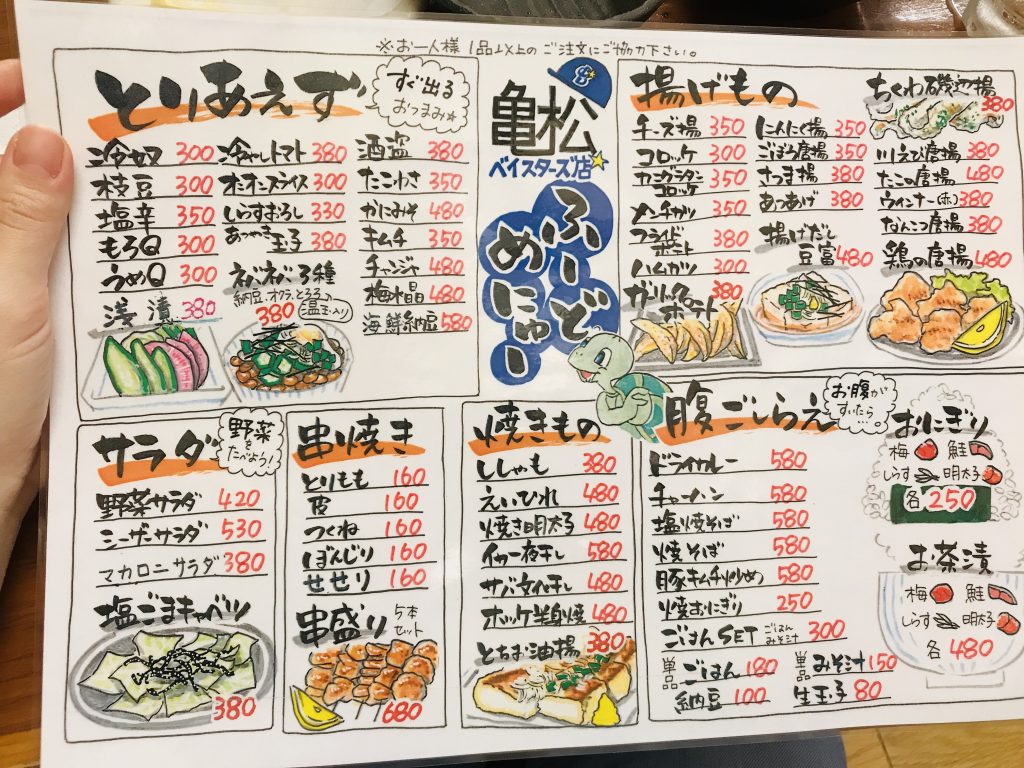 ※お一人様 1品以上のご注文にご協力下さい。
とりあえず
すぐ出る
おつまみ☆
冷奴 300
枝豆 300
塩辛 350
もろQ 300
うめQ 300
浅漬 380
冷やしトマト 380
オニオンスライス 300
しらすおろし 330
あつやき玉子 380
ネバネバ3種
納豆、オクラ、とろろ
(温玉入り)
380
酒盗 380
たこわさ 350
かにみそ 480
キムチ 350
チャンジャ 480
梅水晶 480
海鮮納豆 580
亀松
ベイスターズ店
ふーど
めにゅー
揚げもの
チーズ揚 350
コロッケ 300
カニグラタン
コロッケ 350
メンチカツ 350
フライド
ポテト 380
ハムカツ 300
ガーリック
ポテト 380
にんにく揚 350
ごぼう唐揚 380
さつま揚 380
あつあげ 380
揚げだし
豆富 480
ちくわ磯辺揚
380
川えび唐揚 380
たこの唐揚 480
ウインナー(赤) 380
なんこつ唐揚 380
鶏の唐揚 480
サラダ
野菜
を
たべよう!
野菜サラダ 420
シーザーサラダ 530
マカロニサラダ 380
塩ごまキャベツ
380
串焼き
とりもも 160
皮 160
つくね 160
ぼんじり 160
せせり 160
串盛り 5本
セット
680
焼きもの
ししゃも 380
えいひれ 480
焼き明太子 480
イカ一夜干し 580
サバ文化干し 480
ホッケ半身焼 480
とちお油揚 380
腹ごしらえ
お腹が
すいたら…
ドライカレー 580
チャーハン 580
塩焼そば 580
焼そば 580
豚キムチ炒め 580
焼むにぎり 250
ごはんSET ごはん
みそ汁 300
単品 ごはん 180
納豆 100
単品 みそ汁 150
生玉子 80
おにぎり
梅 鮭
しらす 明太子
各250
お茶漬
梅 鮭
しらす 明太子
各480